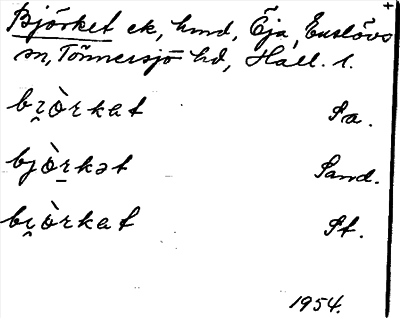 Björket ek, hmd, Öja, Enslövs
sn, Tönnersjö hd, Hall. l. +
bi̯ò̀rkat Sa.
bjò̀rkət Sand.
bi̯ò̀rkat St.
1954.